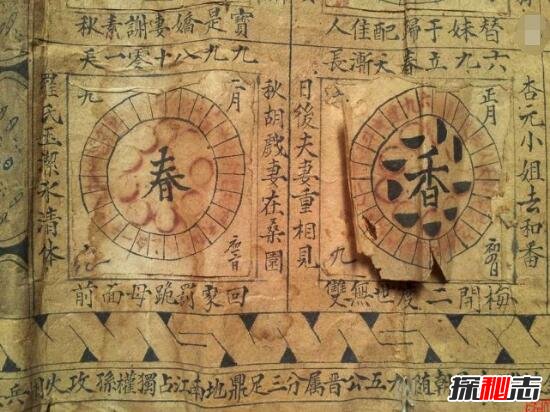 替妹于歸配佳人
六九立春天漸長
杏元小姐去和番
正月
香
九
梅開二度世無雙
日後夫妻重相見
寶是嬌妻謝素秋
九九八十零一天
秋胡戲妻在桑園
二月
九
春
羅氏玉潔冰清体
回家罰跪母面前
火攻孫權獨占江南地鼎足三分属晋公五九随
探秘志